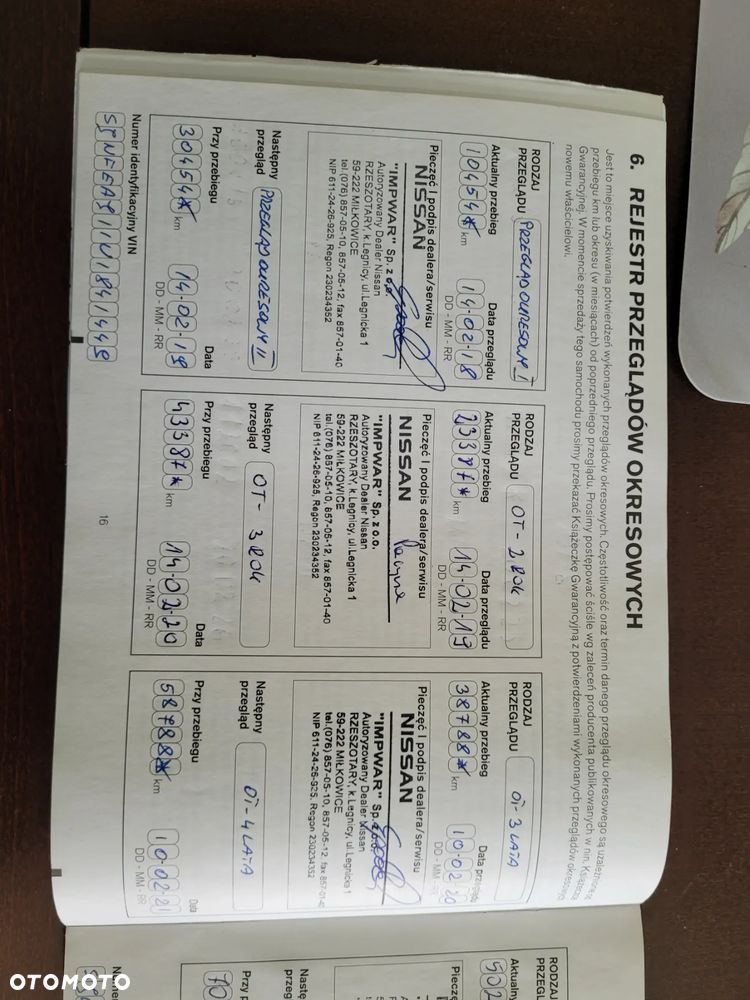 6. REJESTR PRZEGLĄDÓW OKRESOWYCH
Jest to miejsce uzyskiwania potwierdzeń wykonanych przeglądów okresowych. Częstotliwość oraz termin danego przeglądu okresowego są uzależnione od
przebiegu km lub okresu (w miesiącach) od poprzedniego przeglądu. Prosimy postępować ściśle wg zaleceń producenta publikowanych w nin. Książeczce
Gwarancyjnej. W momencie sprzedaży tego samochodu prosimy przekazać Książeczkę Gwarancyjną z potwierdzeniami wykonanych przeglądów okresowych
nowemu właścicielowi.
RODZAJ
PRZEGLĄDU PRZEGLĄD OKRESOWY I
Aktualny przebieg
10454* km
Data przeglądu
14·02·18
DD - MM - RR
Pieczęć i podpis dealera/serwisu
NISSAN
"IMPWAR" Sp. z o.o.
Autoryzowany Dealer Nissan
RZESZOTARY, k.Legnicy, ul.Legnicka 1
59-222 MIŁKOWICE
tel.(076) 857-05-10, 857-05-12, fax 857-01-40
NIP 611-24-26-925, Regon 230234352
Następny
przegląd PRZEGLĄD OKRESOWY II
Przy przebiegu
30454* km
Data
14·02·19
DD - MM - RR
Numer identyfikacyjny VIN
RODZAJ
PRZEGLĄDU OT - 2 ROK
Aktualny przebieg
23387* km
Data przeglądu
14·02·19
DD - MM - RR
Pieczęć i podpis dealera/serwisu
NISSAN
"IMPWAR" Sp. z o.o.
Autoryzowany Dealer Nissan
RZESZOTARY, k.Legnicy, ul.Legnicka 1
59-222 MIŁKOWICE
tel.(076) 857-05-10, 857-05-12, fax 857-01-40
NIP 611-24-26-925, Regon 230234352
Następny
przegląd OT - 3 ROK
Przy przebiegu
43387* km
Data
14·02·20
DD - MM - RR
RODZAJ
PRZEGLĄDU OT - 3 LATA
Aktualny przebieg
38788* km
Data przeglądu
10·02·20
DD - MM - RR
Pieczęć i podpis dealera/serwisu
NISSAN
"IMPWAR" Sp. z o.o.
Autoryzowany Dealer Nissan
RZESZOTARY, k.Legnicy, ul.Legnicka 1
59-222 MIŁKOWICE
tel.(076) 857-05-10, 857-05-12, fax 857-01-40
NIP 611-24-26-925, Regon 230234352
Następny
przegląd OT - 4 LATA
Przy przebiegu
58788* km
Data
10·02·21
DD - MM - RR
16
RODZAJ
PRZEGL
Aktualny
502
Pieczę
Nastę
przeg
Przy p
70
OTOMOTO